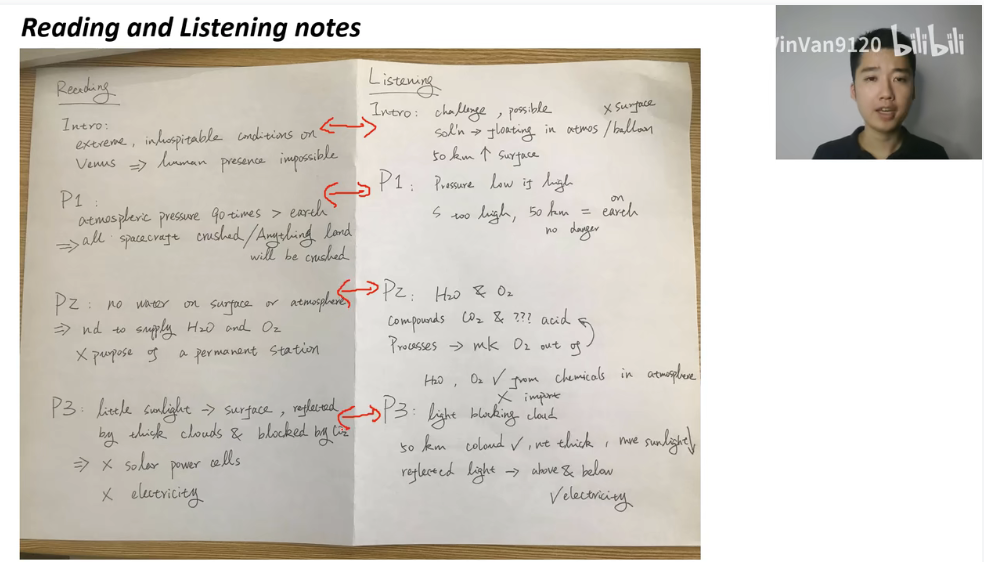 Reading and Listening notes
VinVan9120 bilibili
Reading
Intro:
extreme, inhospitable conditions on
Venus ⇒ human presence impossible
P1:
atmospheric pressure 90 times > earth
⇒ all spacecraft crushed/Anything land
will be crushed
P2: no water on surface or atmosphere
⇒ nd to supply H2O and O2
X purpose of a permanent station
P3: little sunlight → surface, reflected
by thick clouds & blocked by
⇒ X solar power cells
X electricity
Listening
Intro: challenge, possible X surface
sol'n → floating in atmos/balloon
50 km ↑ surface
P1: Pressure low if high
S too high, 50 km = on earth
no danger
P2: H2O & O2
compounds CO2 & ??? acid
Processes → mk O2 out of
H2O, O2 ✓ from chemicals in atmosphere
X import
P3: light blocking cloud
50 km cloud ✓, nt thick, mre sunlight↓
reflected light → above & below
✓electricity